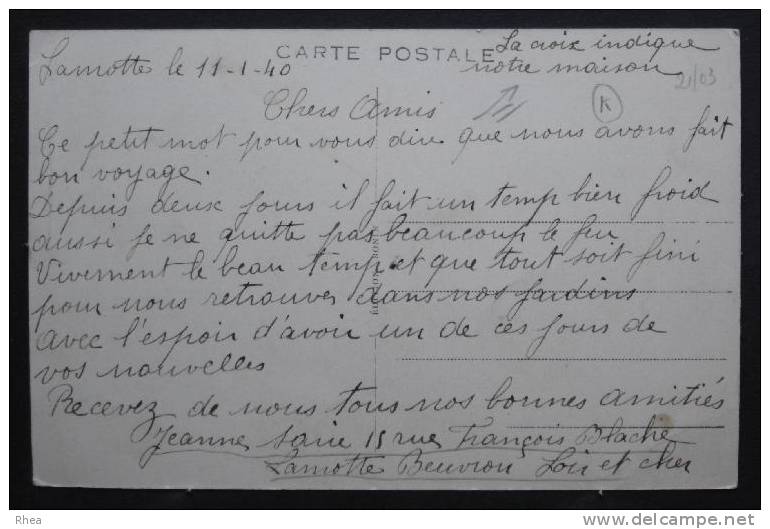 CARTE POSTALE
La croix indique
notre maison
Lamotte le 11-1-40
21/03
K
Chers Amis
Ce petit mot pour vous dire que nous avons fait
bon voyage.
Depuis deux jours il fait un temp bien froid
aussi je ne quitte pas beaucoup le feu
Vivement le beau temp et que tout soit fini
pour nous retrouver dans nos jardins
avec l'espoir d'avoir un de ces jours de
vos nouvelles
Recevez de nous tous nos bonnes amitiés
Jeanne 15 rue François Blache
Lamotte Beuvron Loir et cher
Rhea
www.delcampe.net